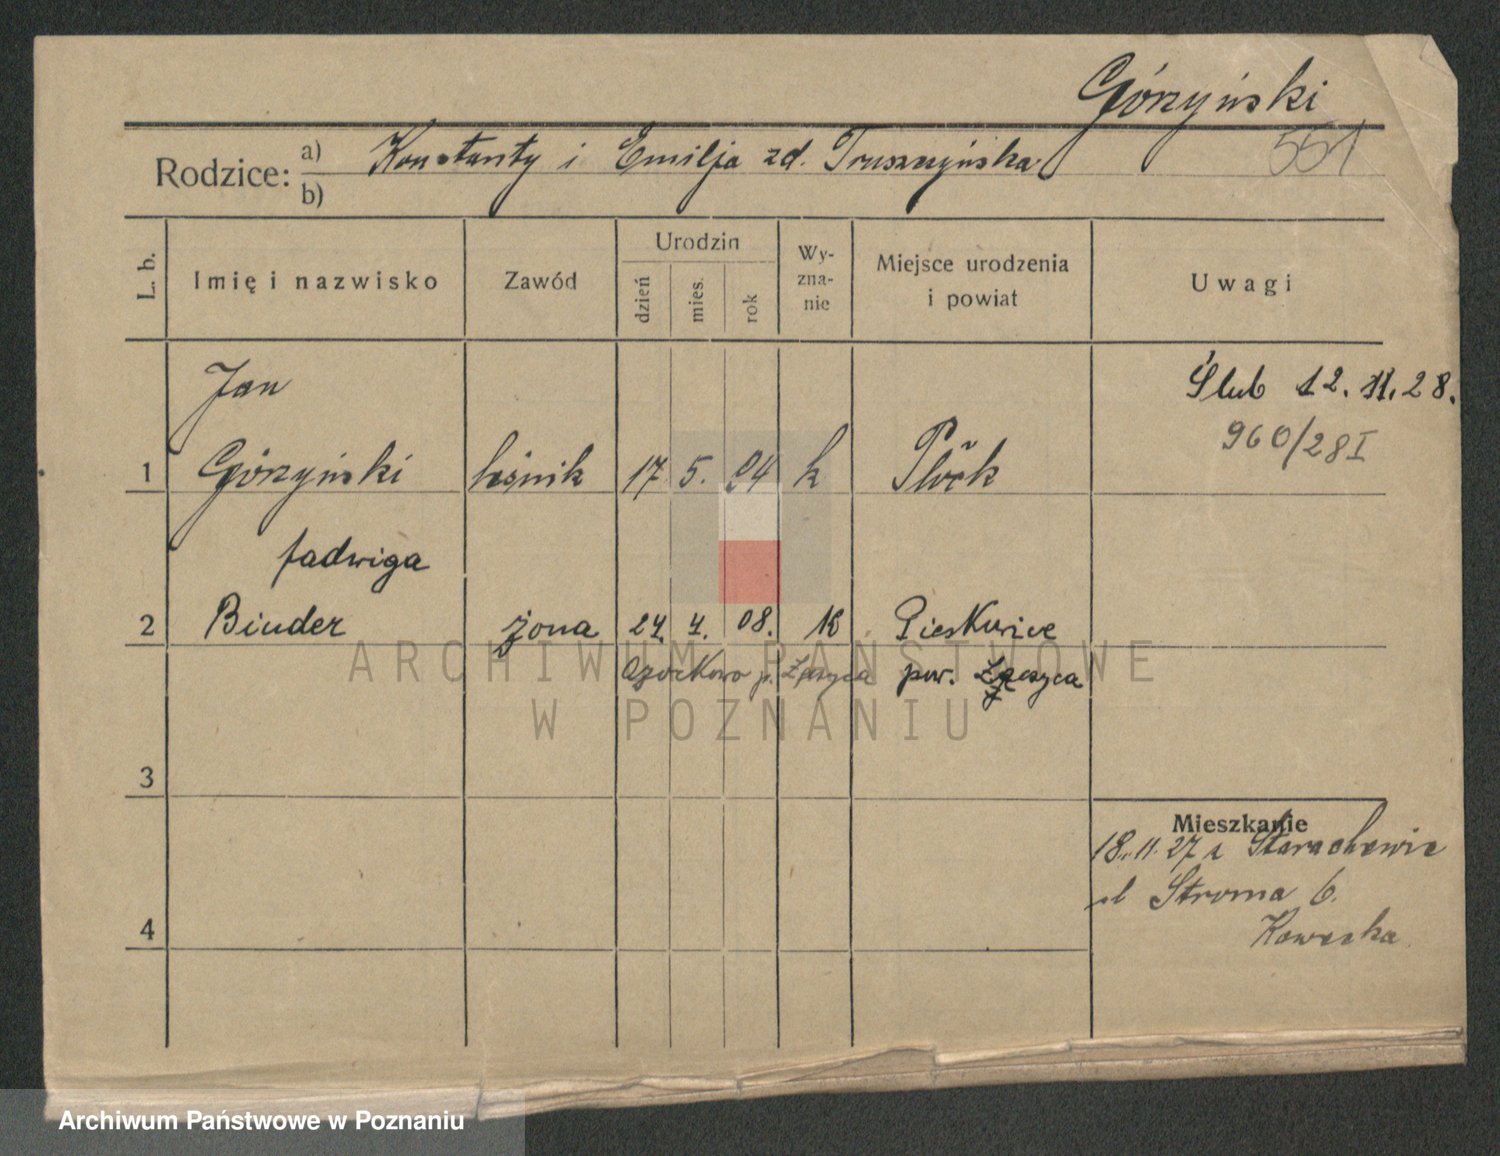 Górzyński
551
Rodzice: a) Konstanty i Emilja zd. Truszczyńska
b)
L. b.
Imię i nazwisko
Zawód
Urodzin
dzień
mies.
rok
Wy-
zna-
nie
Miejsce urodzenia
i powiat
Uwagi
Jan
Ślub 12. 11. 28.
960/28 I
1 Górzyński leśnik 17 5. 04 k Płock
Jadwiga
2 Binder żona 24. 4. 08. k
pow. Łęczyca
3
Mieszkanie
18. 11. 27 z Starachowic
ul Stroma 6.
4
ARCHIWUM PAŃSTWOWE
W POZNANIU
Archiwum Państwowe w Poznaniu